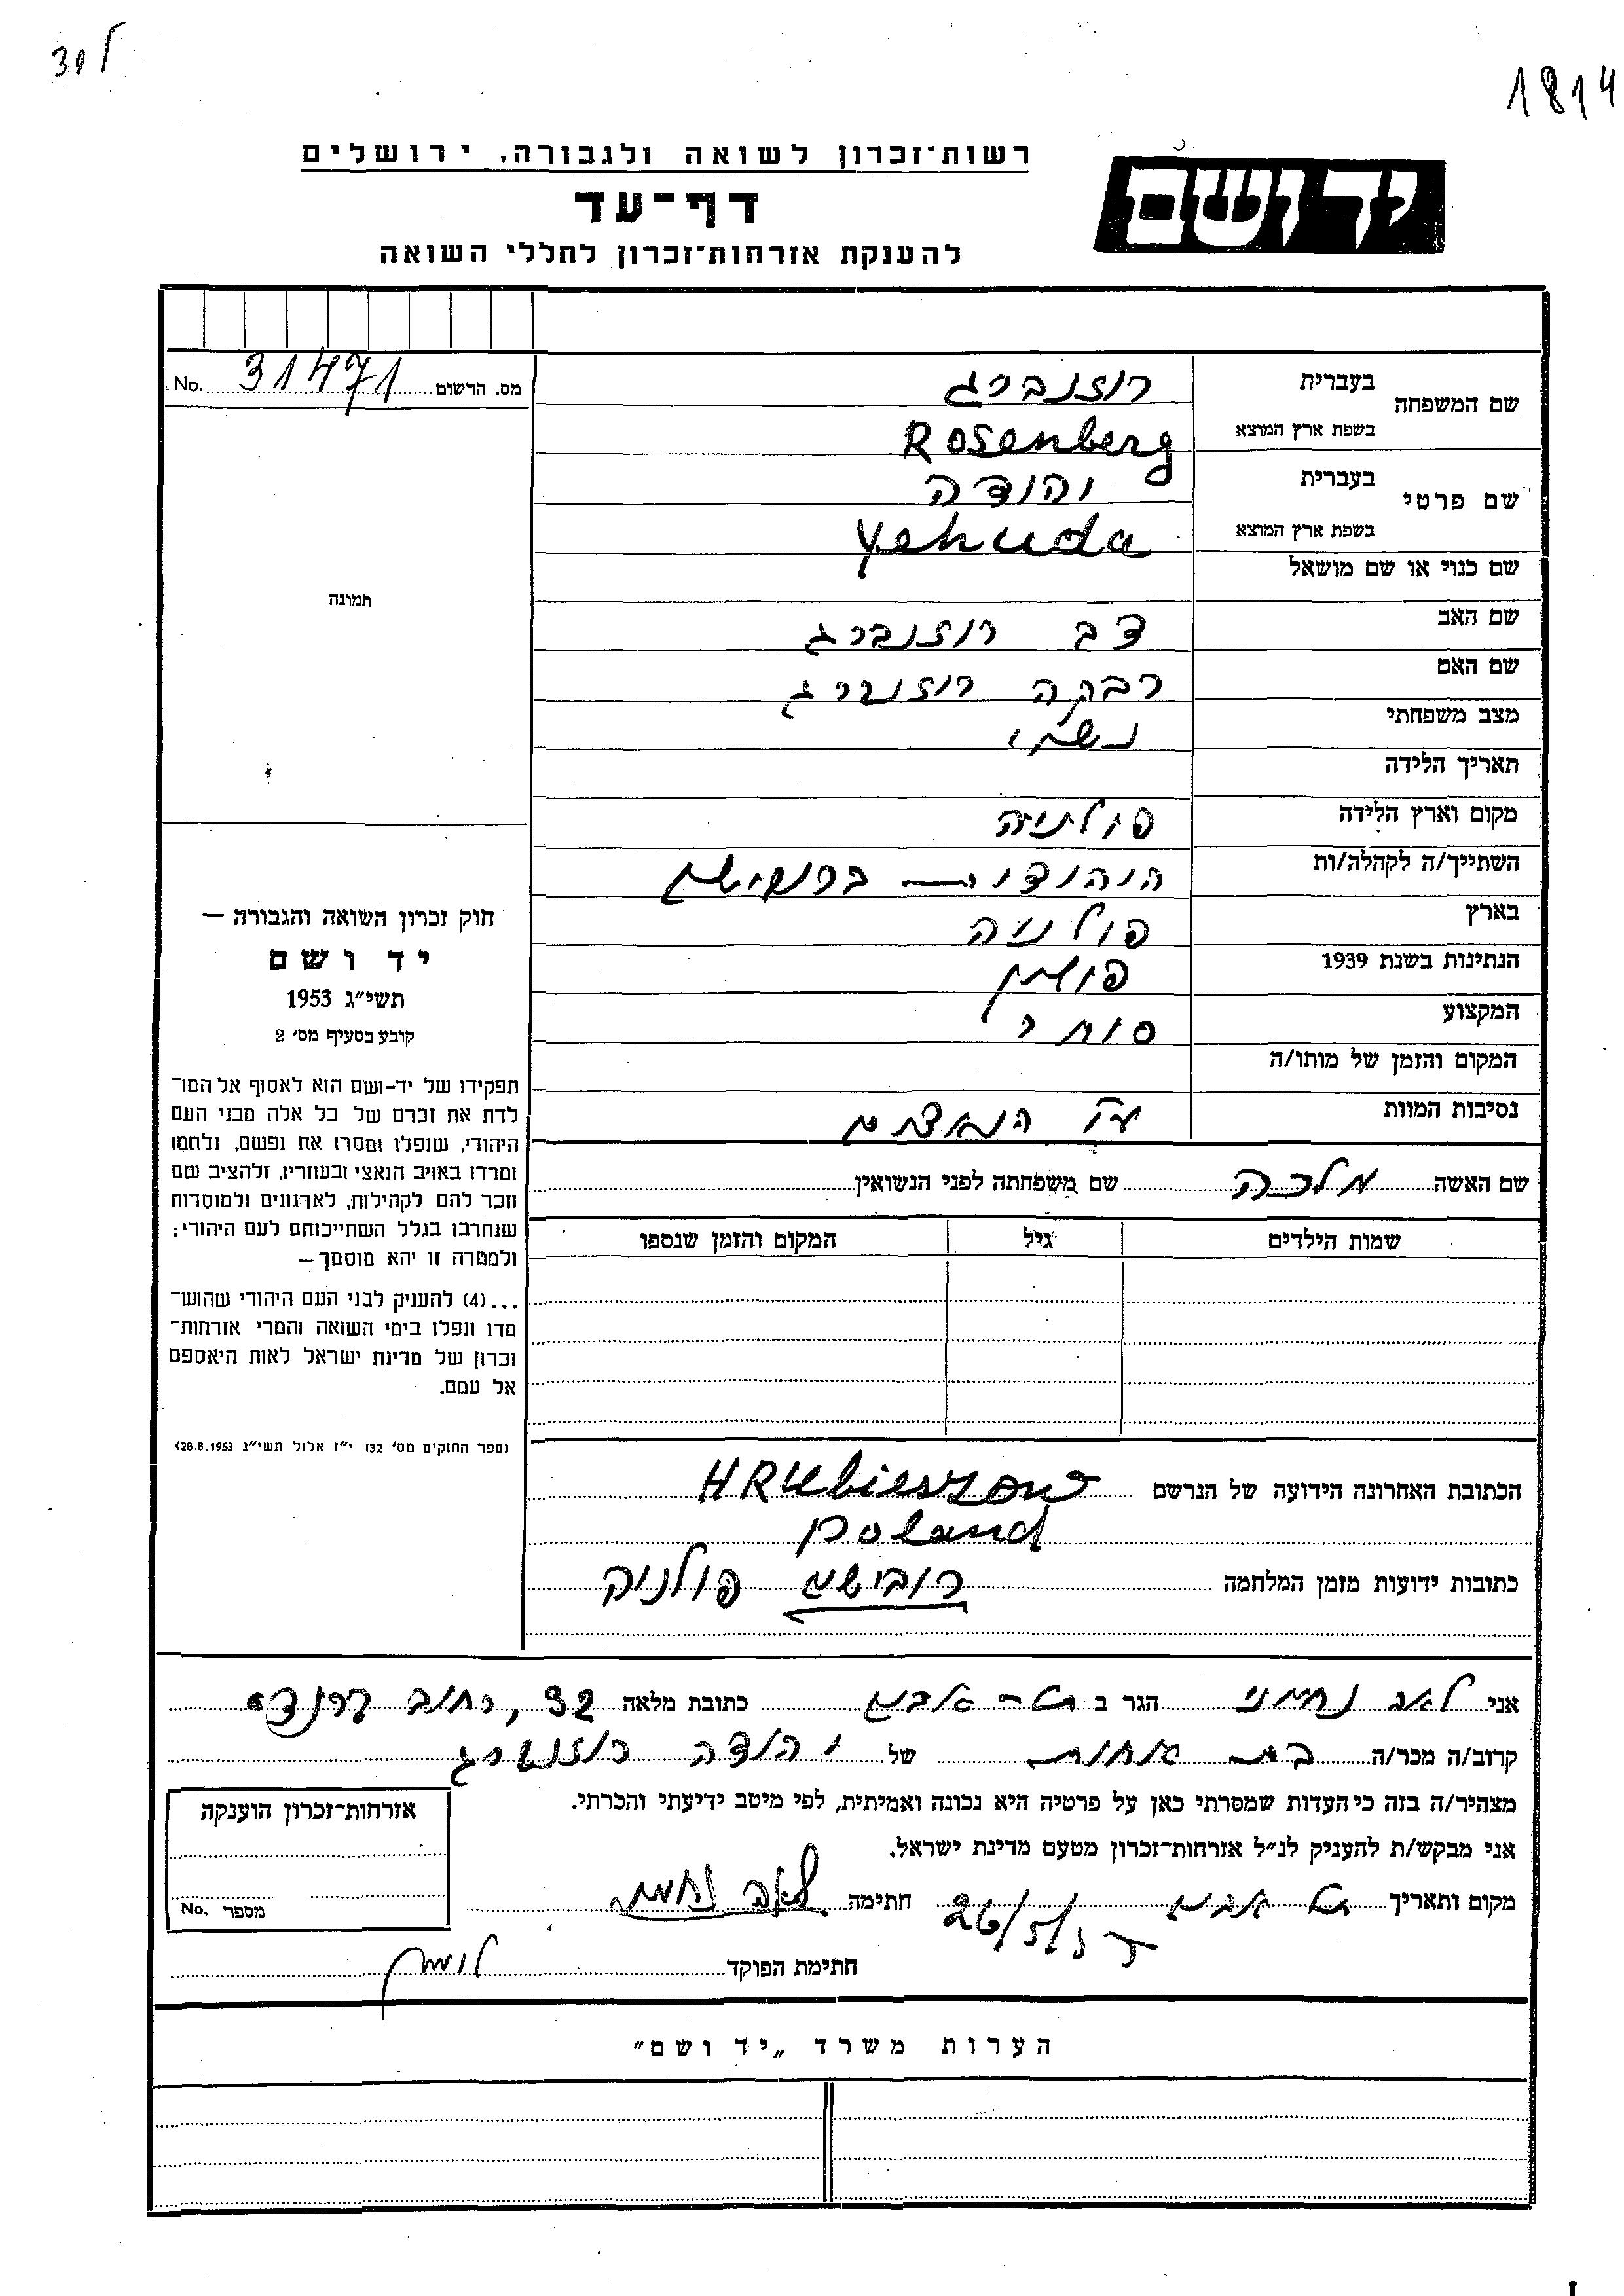 1814
רשות־זכרון לשואה ולגבורה, ירושלים
יד ושם
דף־עד
להענקת אזרחות־זכרון לחללי השואה
מס. הרשום 31471 No.
תמונה
שם המשפחה
בעברית רוזנברג
בשפת ארץ המוצא Rosenberg
שם פרטי
בעברית יהודה
בשפת ארץ המוצא Yehuda
שם כנוי או שם מושאל
שם האב דב רוזנברג
שם האם רבקה רוזנברג
מצב משפחתי נשוי
תאריך הלידה
מקום וארץ הלידה פולניה
השתייך/ה לקהלה/ות היהודית
בארץ פולניה
הנתינות בשנת 1939
המקצוע סוחר
המקום והזמן של מותו/ה
נסיבות המוות ע"י הנאצים
שם האשה מלכה שם משפחתה לפני הנשואין
שמות הילדים גיל המקום והזמן שנספו
חוק זכרון השואה והגבורה —
יד ושם
תשי״ג 1953
קובע בסעיף מס׳ 2
תפקידו של יד-ושם הוא לאסוף אל המו־
לדת את זכרם של כל אלה מבני העם
היהודי, שנפלו ומסרו את נפשם, נלחמו
ומרדו באויב הנאצי ובעוזריו, ולהציב שם
וזכר להם לקהילות, לארגונים ולמוסדות
שנחרבו בגלל השתייכותם לעם היהודי;
ולמטרה זו יהא מוסמך —
...(4) להעניק לבני העם היהודי שהוש־
מדו ונפלו בימי השואה והמרי אזרחות־
זכרון של מדינת ישראל לאות היאספם
אל עמם.
(ספר החוקים מס׳ 132 י״ז אלול תשי״ג 28.8.1953)
הכתובת האחרונה הידועה של הנרשם HRUbieszow
poland
כתובות ידועות מזמן המלחמה רובישוב פולניה
אני לאה נחמני הגר ב כתובת מלאה 32, רחוב
קרוב/ה מכר/ה בת אחות של יהודה רוזנברג
מצהיר/ה בזה כי העדות שמסרתי כאן על פרטיה היא נכונה ואמיתית, לפי מיטב ידיעתי והכרתי.
אני מבקש/ת להעניק לנ״ל אזרחות־זכרון מטעם מדינת ישראל.
מקום ותאריך 26/5/ חתימה
אזרחות־זכרון הוענקה
מספר No.
חתימת הפוקד
הערות משרד „יד ושם״